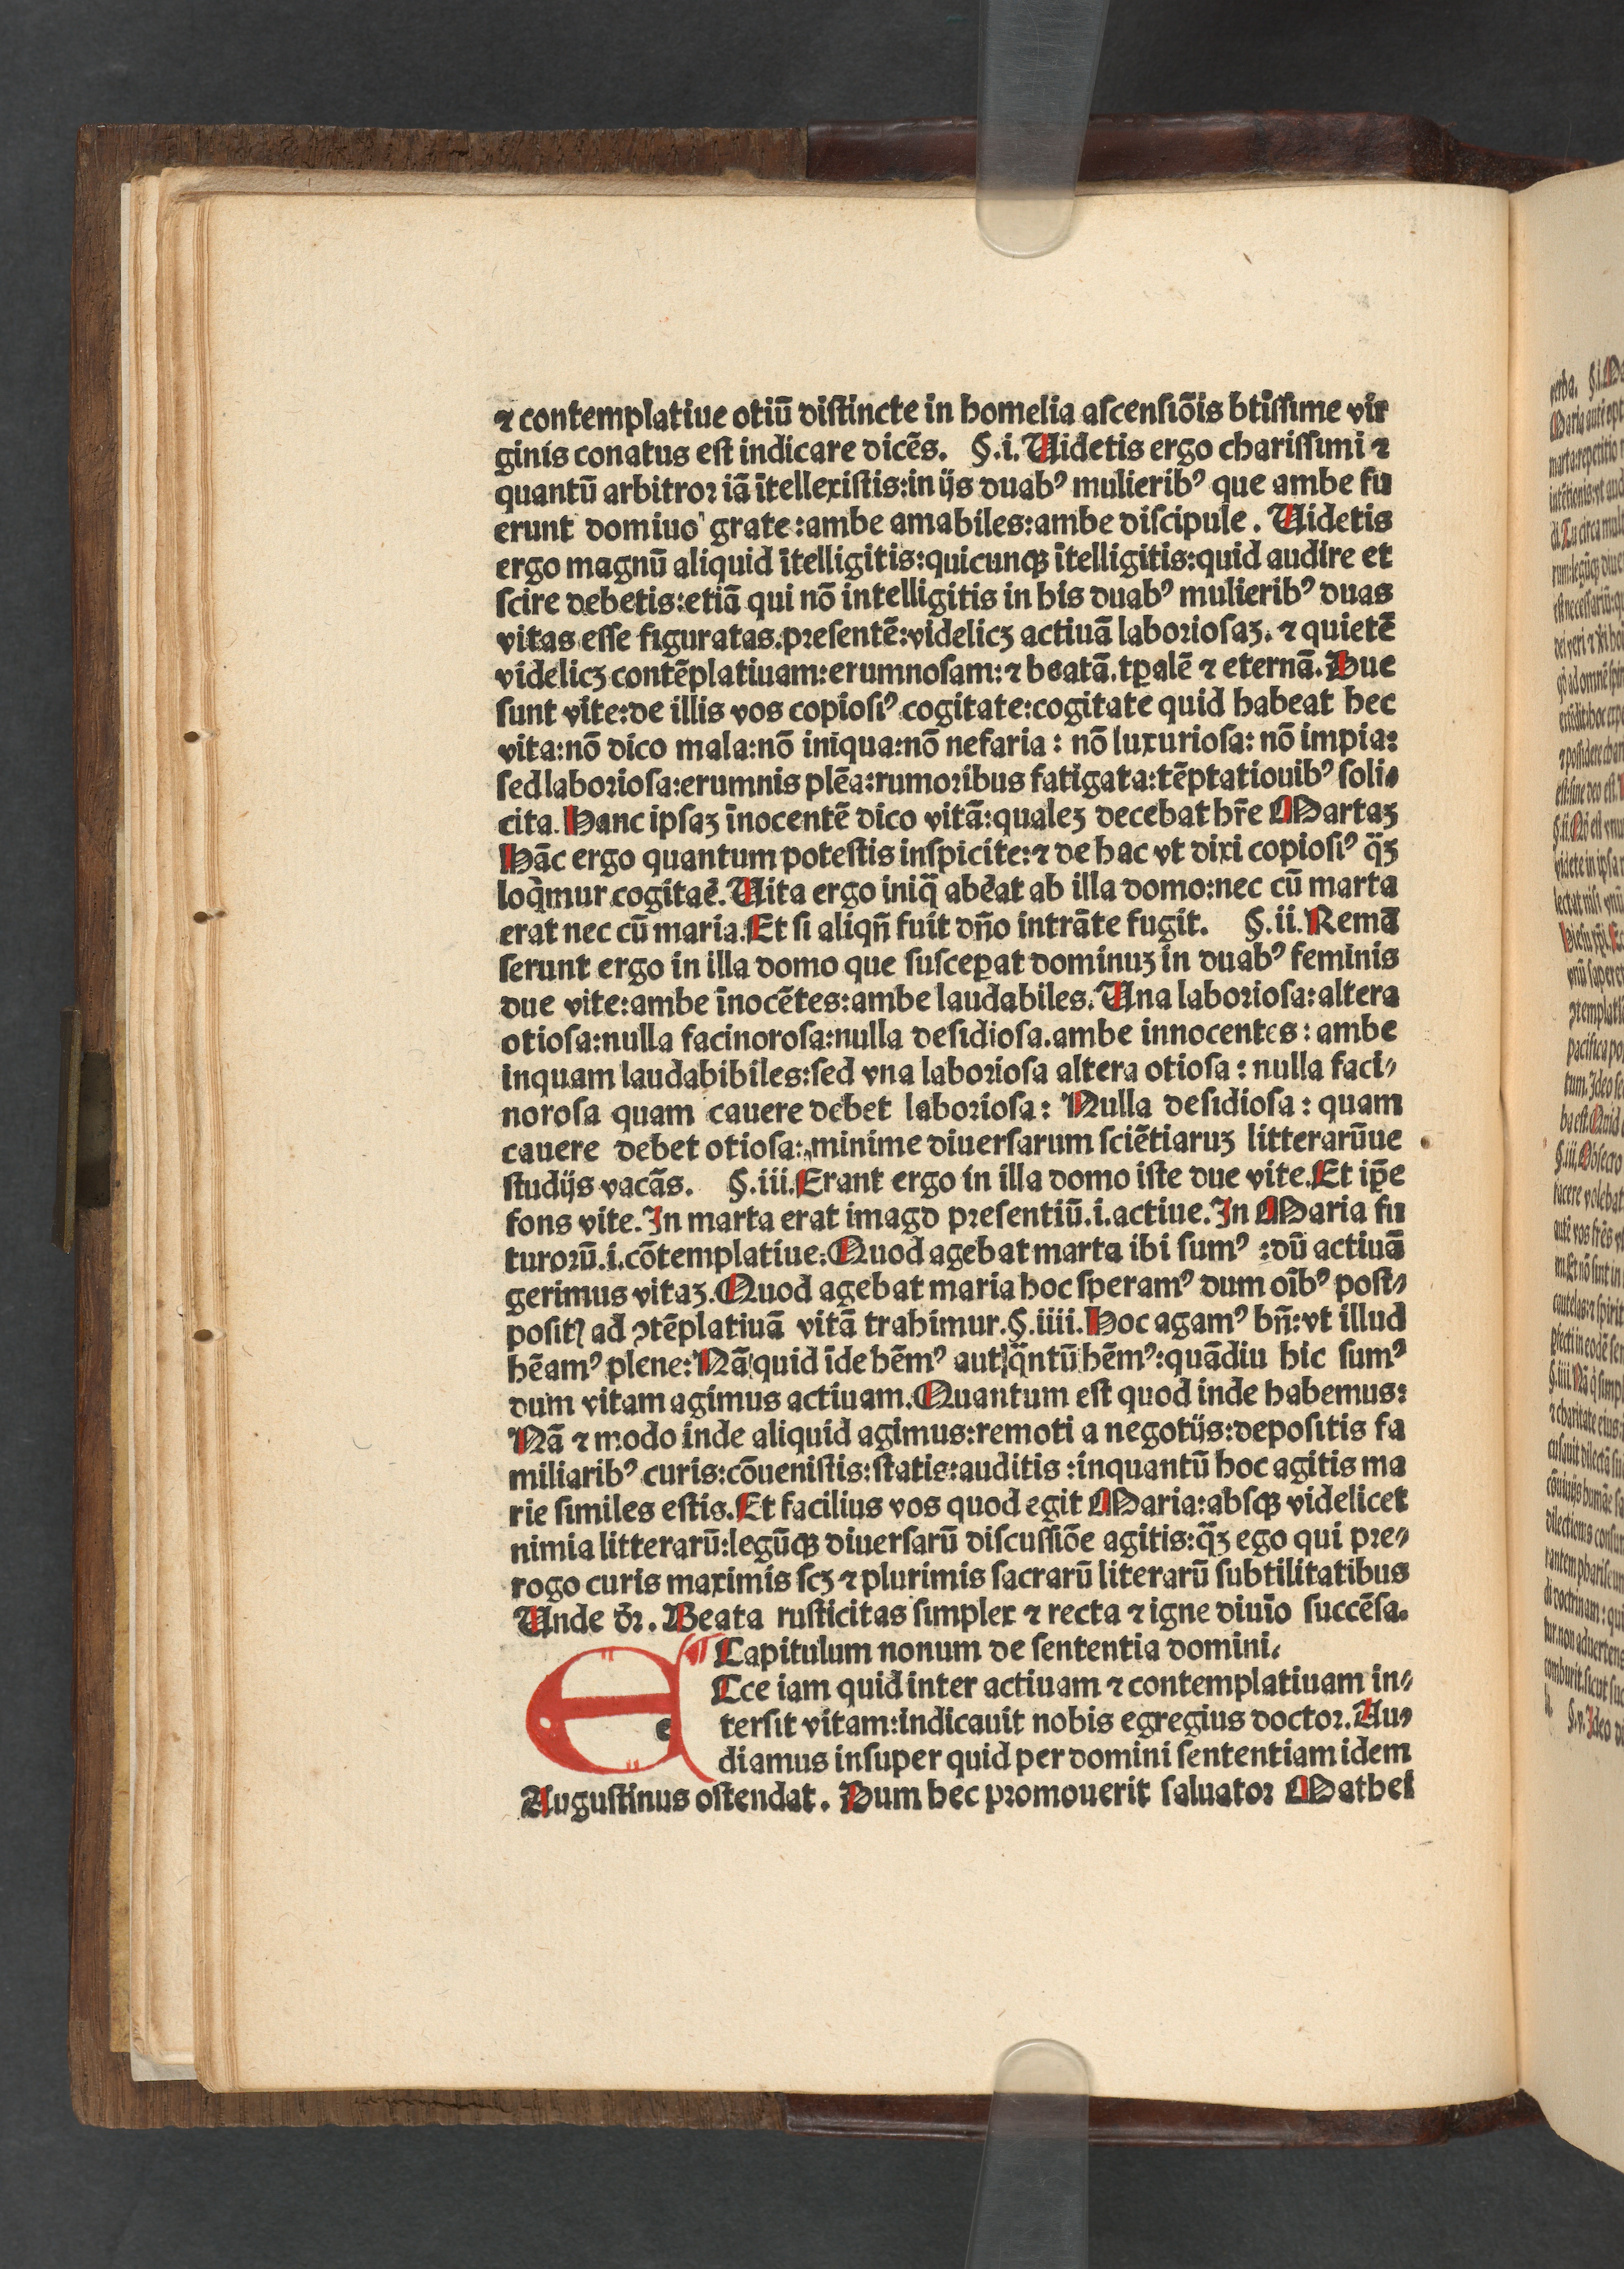 ⁊ contemplatiue otiū distincte in homelia ascensiōis btīssime vir
ginis conatus est indicare dicēs. §.i. Uidetis ergo charissimi ⁊
quantū arbitror iā ītellexistis:in ijs duabꝰ mulieribꝰ que ambe fu
erunt domiuo grate:ambe amabiles:ambe discipule. Uidetis
ergo magnū aliquid ītelligitis:quicunqꝫ ītelligitis:quid audire et
scire debetis:etiā qui nō intelligitis in his duabꝰ mulieribꝰ duas
vitas esse figuratas.presentē:videlicꝫ actiuā laboriosaꝫ. ⁊ quietē
videlicꝫ contēplatiuam:erumnosam:⁊ beatā.tꝑalē ⁊ eternā. Due
sunt vite:de illis vos copiosiꝰ cogitate:cogitate quid habeat hec
vita:nō dico mala:nō iniqua:nō nefaria: nō luxuriosa: nō impia:
sed laboriosa:erumnis plēa:rumoribus fatigata:tēptatiouibꝰ soli⸗
cita. Hanc ipsaꝫ īnocentē dico vitā:qualeꝫ decebat hr̄e Martaꝫ
Hāc ergo quantum potestis inspicite:⁊ de hac vt dixi copiosiꝰ q̄ꝫ
loq̄mur cogitaē. Uita ergo iniq̄ abēat ab illa domo:nec cū marta
erat nec cū maria. Et si aliqn̄ fuit dn̄o intrāte fugit. §.ii. Remā
serunt ergo in illa domo que susceꝑat dominuꝫ in duabꝰ feminis
due vite:ambe īnocētes:ambe laudabiles. Una laboriosa:altera
otiosa:nulla facinorosa:nulla desidiosa.ambe innocentes: ambe
inquam laudabibiles:sed vna laboriosa altera otiosa: nulla faci⸗
norosa quam cauere debet laboriosa: Nulla desidiosa: quam
cauere debet otiosa: minime diuersarum sciētiaruꝫ litterarūue
studijs vacās. §.iii. Erant ergo in illa domo iste due vite. Et ip̄e
fons vite. In marta erat imago presentiū.i.actiue. In Maria fu
turorū.i.cōtemplatiue. Quod agebat marta ibi sumꝰ :dū actiuā
gerimus vitaꝫ. Quod agebat maria hoc speramꝰ dum oībꝰ post⸗
positꝭ ad ꝯtēplatiuā vitā trahimur. §.iiii. Hoc agamꝰ bn̄:vt illud
hēamꝰ plene: Nā quid īde hēmꝰ aut q̄ntū hēmꝰ:quādiu hic sumꝰ
dum vitam agimus actiuam. Quantum est quod inde habemus:
Nā ⁊ modo inde aliquid agimus:remoti a negotijs:depositis fa
miliaribꝰ curis:cōuenistis:statis:auditis :inquantū hoc agitis ma
rie similes estis. Et facilius vos quod egit Maria:absqꝫ videlicet
nimia litterarū:legūqꝫ diuersarū discussiōe agitis:q̄ꝫ ego qui pre⸗
rogo curis maximis scꝫ ⁊ plurimis sacrarū literarū subtilitatibus
Unde dr̄. Beata rusticitas simplex ⁊ recta ⁊ igne diuīo succēsa.
¶ Capitulum nonum de sententia domini.
ECce iam quid inter actiuam ⁊ contemplatiuam in⸗
tersit vitam:indicauit nobis egregius doctor. Au⸗
diamus insuper quid per domini sententiam idem
Augustinus ostendat. Dum hec promouerit saluator Mathei